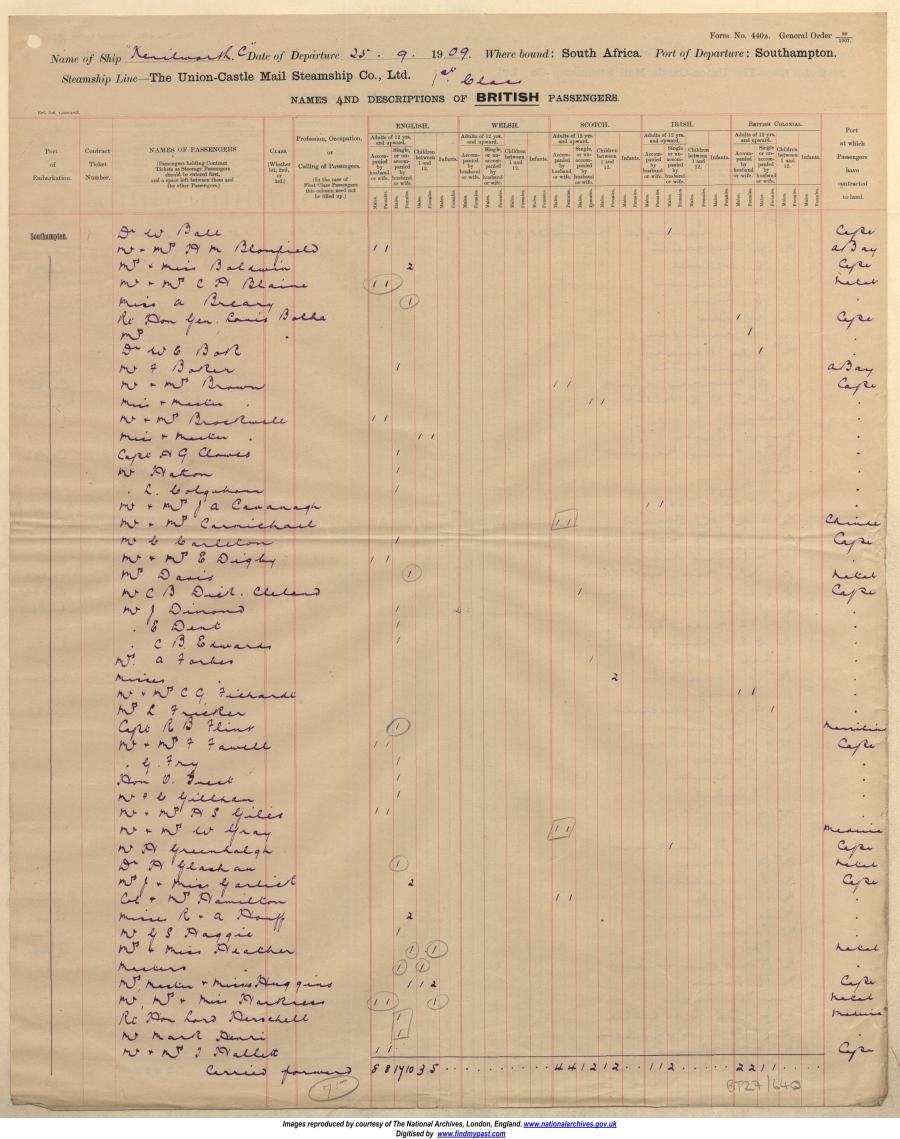 Form No. 440A. General Order 98/1907.
Name of Ship "Kenilworth C" Date of Departure 25 . 9 . 1909. Where bound: South Africa. Port of Departure: Southampton.
Steamship Line—The Union-Castle Mail Steamship Co., Ltd. 1st Class
NAMES AND DESCRIPTIONS OF BRITISH PASSENGERS.
ENGLISH. WELSH. SCOTCH. IRISH. BRITISH COLONIAL.
Port of Embarkation.
Contract Ticket Number.
NAMES OF PASSENGERS
(Passengers holding Contract Tickets as Steerage Passengers should be entered first, and a space left between them and the other Passengers.)
CLASS. (Whether 1st, 2nd, or 3rd.)
Profession, Occupation, or Calling of Passengers.
(In the case of First Class Passengers this column need not be filled up.)
Adults of 12 yrs. and upward.
Accompanied by husband or wife.
Single, or unaccompanied by husband or wife.
Children between 1 and 12.
Infants.
Males. Females.
Port at which Passengers have contracted to land.
Southampton. Dr W Ball 1 Cape
Mr & Mrs H M Blomfield 1 1 A Bay
Mrs & Miss Baldwin 2 Cape
Mr & Mrs C A Blaine 1 1 Natal
Miss A Breary 1
Rt Hon Gen. Louis Botha 1 Cape
Mrs . 1 .
Dr W E Bok 1 .
Mr F Baker 1 A Bay
Mr & Mrs Brown 1 1 Cape
Miss & Master . 1 1 .
Mr & Mrs Brockwell 1 1 .
Miss & Master . 1 1 .
Capt H G Clowes 1 .
Mr Haton 1 .
. L. Colquhoun 1 .
Mr & Mrs J A Cavanagh 1 1 .
Mr & Mrs Carmichael 1 1 Chinde
Mr C Carleton 1 Cape
Mr & Mrs E Digby 1 1 .
Mrs Davis 1 Natal
Mr C B Dick. Cleland 1 Cape
Mr J Dimond 1 .
. E Dent 1 .
. C B. Edwards 1 .
Mrs. A Forbes 1 .
Misses . 2 .
Mr & Mrs C G Fichardt 1 1 .
Mrs L Fricker 1 .
Capt R B Flint 1 Mauritius
Mr & Mrs F Fawell 1 1 Cape
. G. Fry 1 .
Hon O. Guest 1 .
Mr F C Gillham 1 .
Mr & Mrs H S Giles 1 1 .
Mr & Mrs W Gray 1 1 Madeira
Mr H Greenhalgh 1 Cape
Dr H Glashan 1 Natal
Mrs J & Miss Garlick 2 Cape
Col & Mrs Hamilton 1 1 .
Misses R & A Hauff 2 .
Mr G S Haggie 1 .
Mrs & Miss Heather 1 1 Natal
Masters . 1 1 .
Mrs, Master & Misses Huggins 1 1 2 Cape
Mr, Mrs & Miss Harkness 1 1 1 Natal
Rt Hon Lord Herschell 1 Madeira
Mr Mark Henri 1 .
Mr & Mrs J Hallett 1 1 Cape
Carried forward 8 8 17 10 3 5 4 4 1 2 1 2 1 1 2 2 2 1 1
75
BT27/640
Images reproduced by courtesy of The National Archives, London, England. www.nationalarchives.gov.uk
Digitised by www.findmypast.com